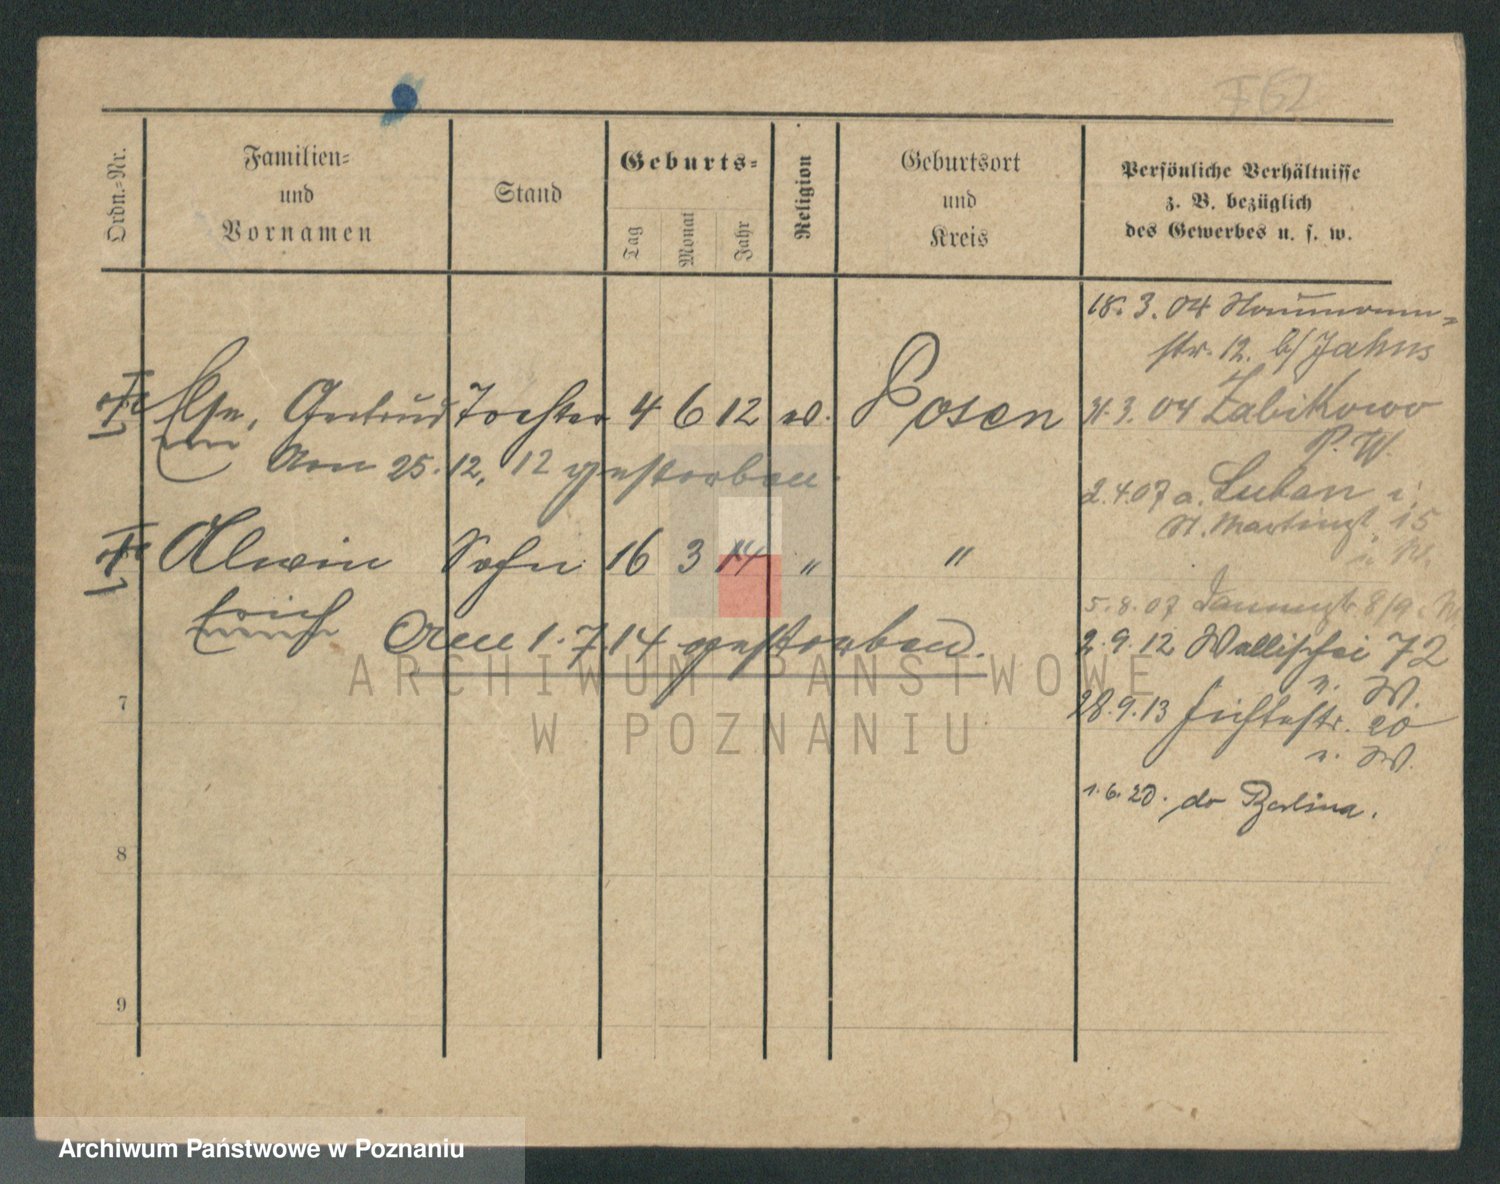 F 62
Ordn.-Nr.
Familien-
und
Vornamen
Stand
Geburts-
Tag
Monat
Jahr
Religion
Geburtsort
und
Kreis
Persönliche Verhältnisse
z. B. bezüglich
des Gewerbes u. s. w.
18. 3. 04 Naumann-
str. 12. b/ Jahns
Else, Gertrud Tochter 4 6 12 ev. Posen
3. 04 Zabikowo
P. W.
Am 25. 12. 12 gestorben.
2. 4. 07 a. Luban i.
St. Martinstr. 15
Alwin Sohn 16 3 14 " "
W.
Erich
Am 1. 7. 14 gestorben.
5. 8. 07 8/9
2. 9. 12 Wallischei 72
n. W.
7
28. 9. 13 Fichtestr. 20
n. W.
1. 6. 20. do Berlina.
8
9
ARCHIWUM PAŃSTWOWE
W POZNANIU
Archiwum Państwowe w Poznaniu